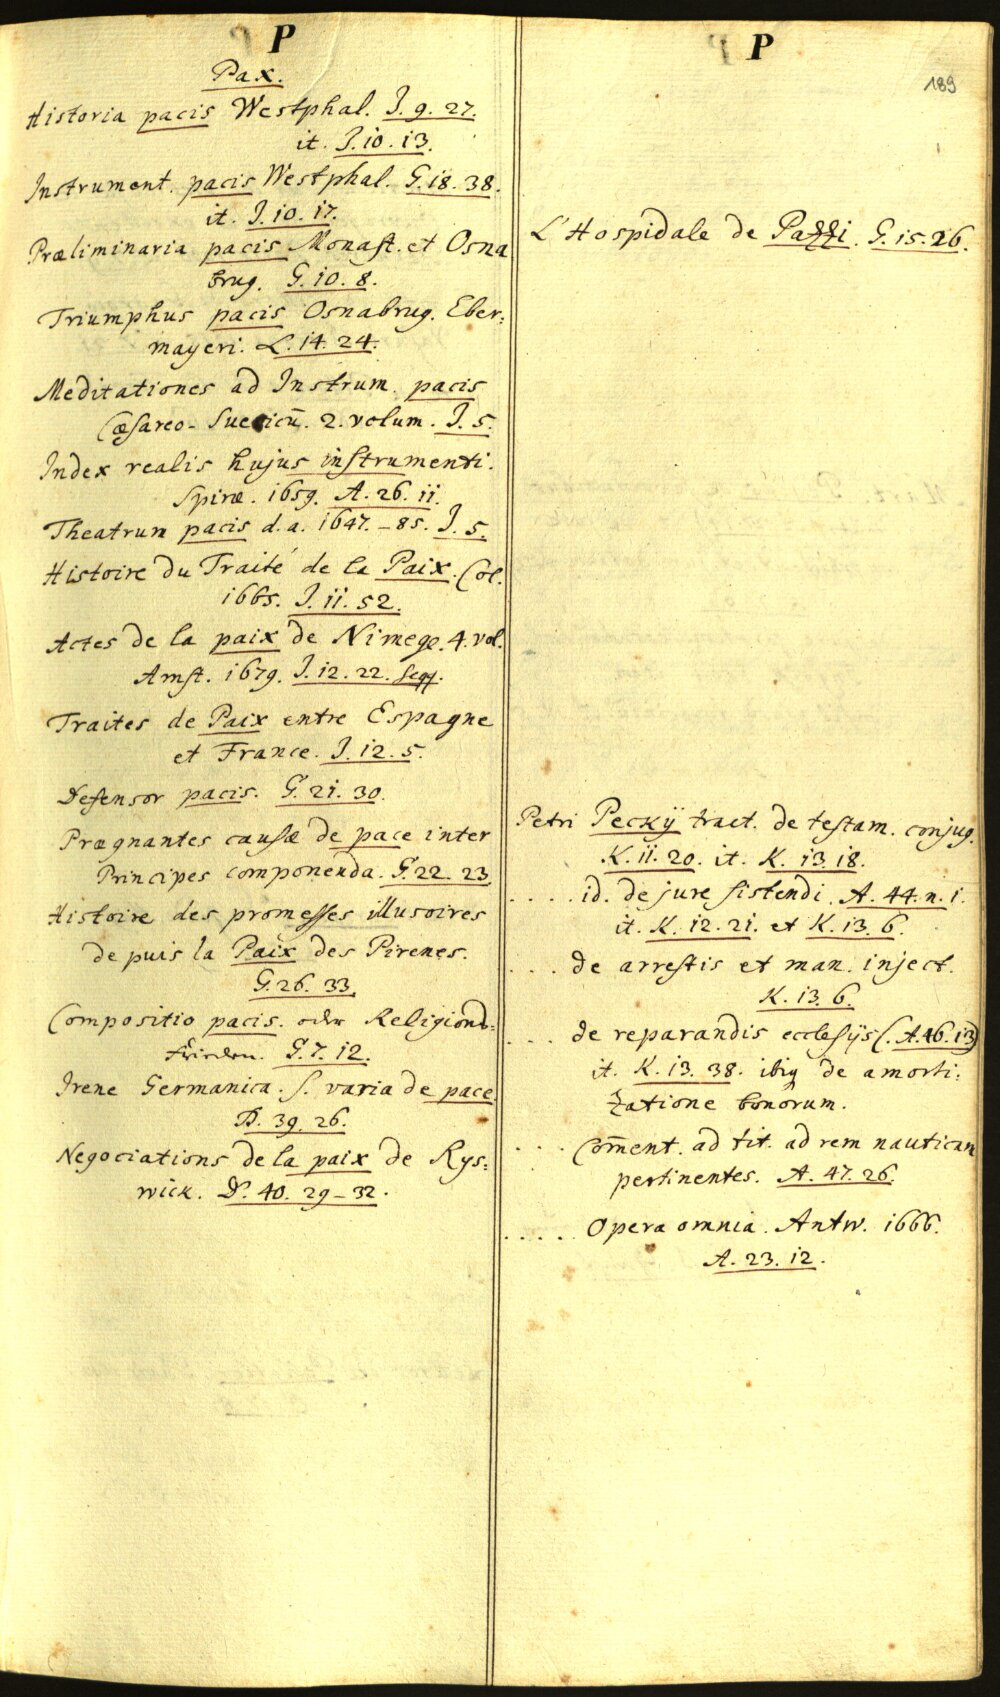 P
Pax.
Historia pacis Westphal. J. 9. 27.
it. J. 10. 13.
Instrument. pacis Westphal. G. 18. 38.
it. J. 10. 17.
Præliminaria pacis Monast. et Osna
brug. G. 10. 8.
Triumphus pacis Osnabrug. Eber:
mayeri. L. 14. 24.
Meditationes ad Instrum. pacis
Cæsareo-Suecicū. 2. volum. J. 5.
Index realis hujus instrumenti.
Spiræ. 1659. A. 26. 11.
Theatrum pacis d. a. 1647.-85. J. 5.
Histoire du Traité de la Paix. Col.
1665. J. 11. 52.
Actes de la paix de Nimege. 4. vol.
Amst. 1679. J. 12. 22. seqq.
Traites de Paix entre Espagne
et France. J. 12. 5.
Defensor pacis. G. 21. 30.
Prægnantes causæ de pace inter
Principes componenda. G. 22. 23.
Histoire des promesses illusoires
de puis la Paix des Pirenes.
G. 26. 33.
Compositio pacis. oder Religions-
Frieden. G. 7. 12.
Irene Germanica. s. varia de pace.
D. 39. 26.
Negociations de la paix de Rys:
wick. D. 40. 29-32.
P
189
L'Hospidale de Pazzi. G. 15. 26.
Petri Peckij tract. de testam. conjug.
K. 11. 20. it. K. 13. 18.
.... id. de jure sistendi. A. 44. n. 1.
it. K. 12. 21. et K. 13. 6.
... de arrestis et man. inject.
K. 13. 6.
... de reparandis ecclesijs (. A. 46. 13)
it. K. 13. 38. ibiq de amorti:
zatione bonorum.
... Com̄ent. ad tit. ad rem nauticam
pertinentes. A. 47. 26.
..... Opera omnia. Antw. 1666.
A. 23. 12.